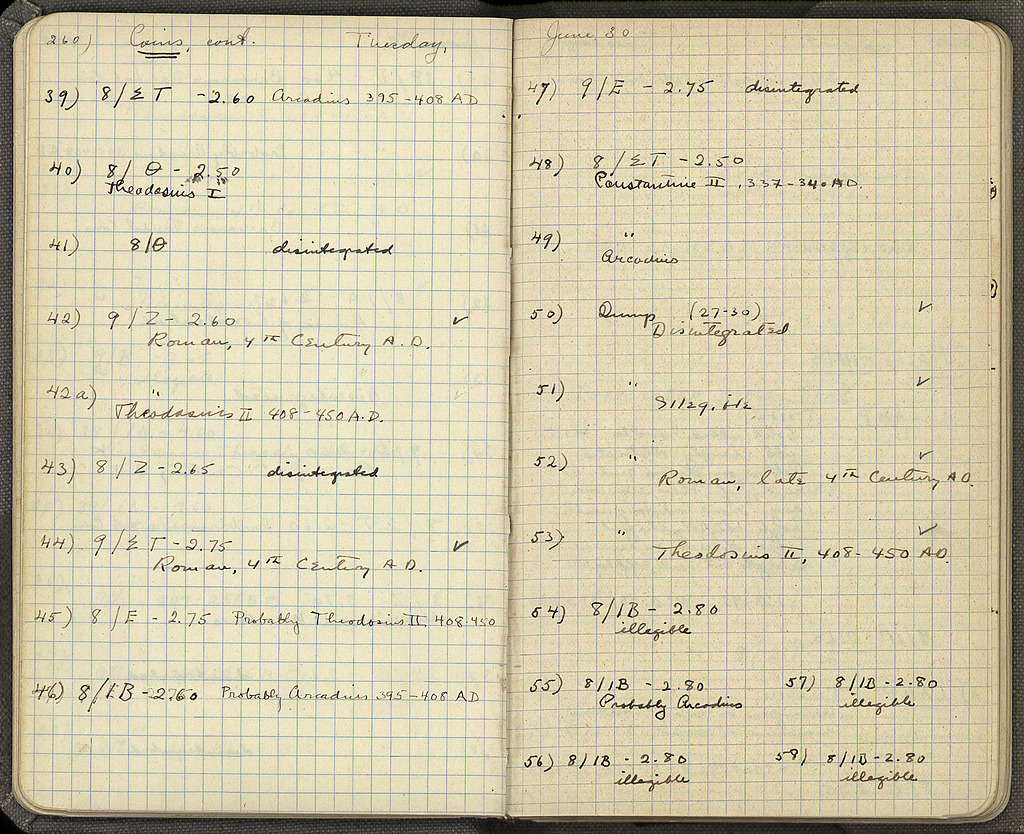 260) Coins, cont. Tuesday,
39) 8/ΣT - 2.60 Arcadius 395-408 AD
40) 8/Θ - 2.50
Theodosius I
41) 8/Θ disintegrated
42) 9/Z - 2.60 ✓
Roman, 4th Century A.D.
42a) "
Theodosius II 408-450 A.D.
43) 8/Z - 2.65 disintegrated
44) 9/ΣT - 2.75 ✓
Roman, 4th Century A D.
45) 8/E - 2.75 Probably Theodosius II 408-450
46) 8/IB - 2.60 Probably Arcadius 395-408 AD
June 30
47) 9/E - 2.75 disintegrated
48) 8/ΣT - 2.50
Constantine II, 337-340 A.D.
49) "
Arcadius
50) Dump (27-30) ✓
Disintegrated
51) " ✓
Illeg.
52) " ✓
Roman, late 4th Century A D.
53) " ✓
Theodosius II, 408-450 AD.
54) 8/IB - 2.80
illegible
55) 8/IB - 2.80 57) 8/IB - 2.80
Probably Arcadius illegible
56) 8/IB - 2.80 58) 8/IB - 2.80
illegible illegible